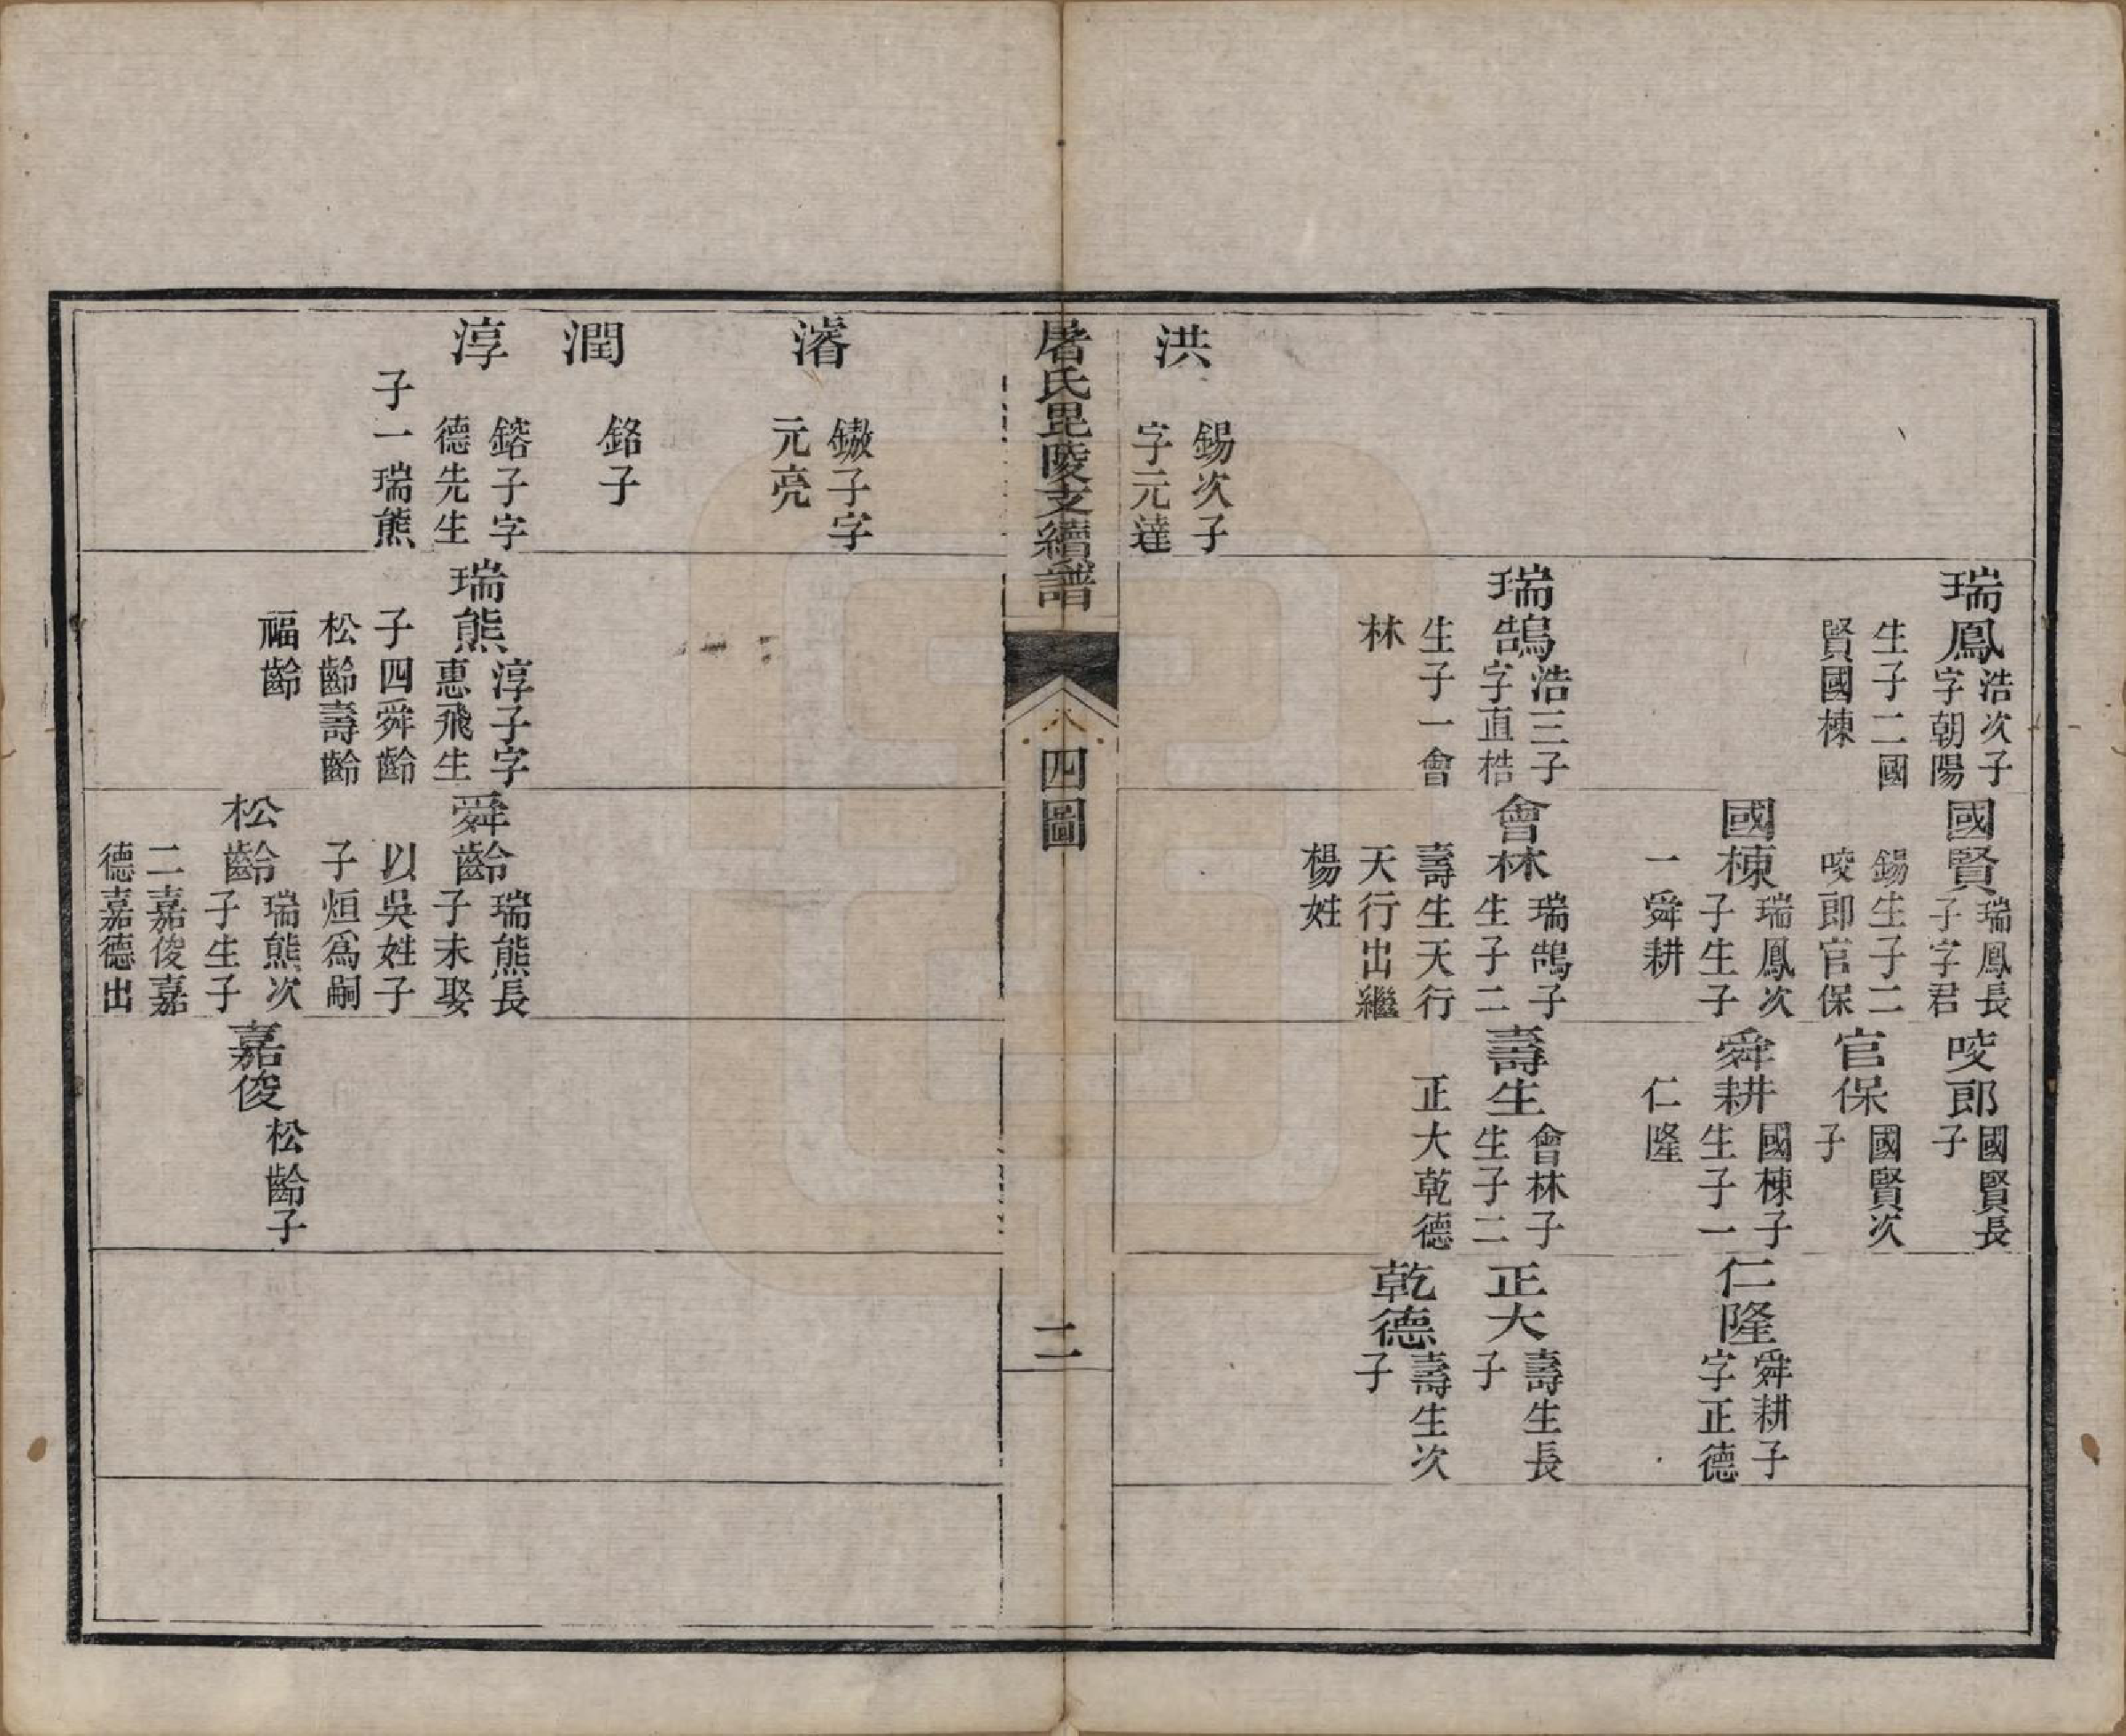 瑞鳳浩次子字朝陽生子二國賢國棟
瑞鵠浩三子字直梏生子一會林
國賢瑞鳳長子字君錫生子二咬郎官保
國棟瑞鳳次子生子一舜耕
會林瑞鵠子生子二壽生天行天行出繼楊姓
咬郎國賢長子
官保國賢次子
舜耕國棟子生子一仁隆
壽生會林子生子二正大乾德
仁隆舜耕子字正德
正大壽生長子
乾德壽生次子
洪錫次子字元達
屠氏毘陵支續譜
八四圖
二
濬鏾子字元亮
潤銘子
淳鎔子字德先生子一瑞熊
瑞熊淳子字惠飛生子四舜齡松齡壽齡福齡
舜齡瑞熊長子未娶以吳姓子子烜為嗣
松齡瑞熊次子生子二嘉俊嘉德嘉德出
嘉俊松齡子